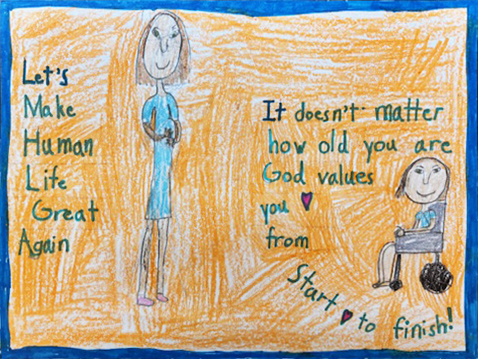 Let's
Make
Human
Life
Great
Again
It doesn't matter
how old you are
God values
you
from
Start to finish!